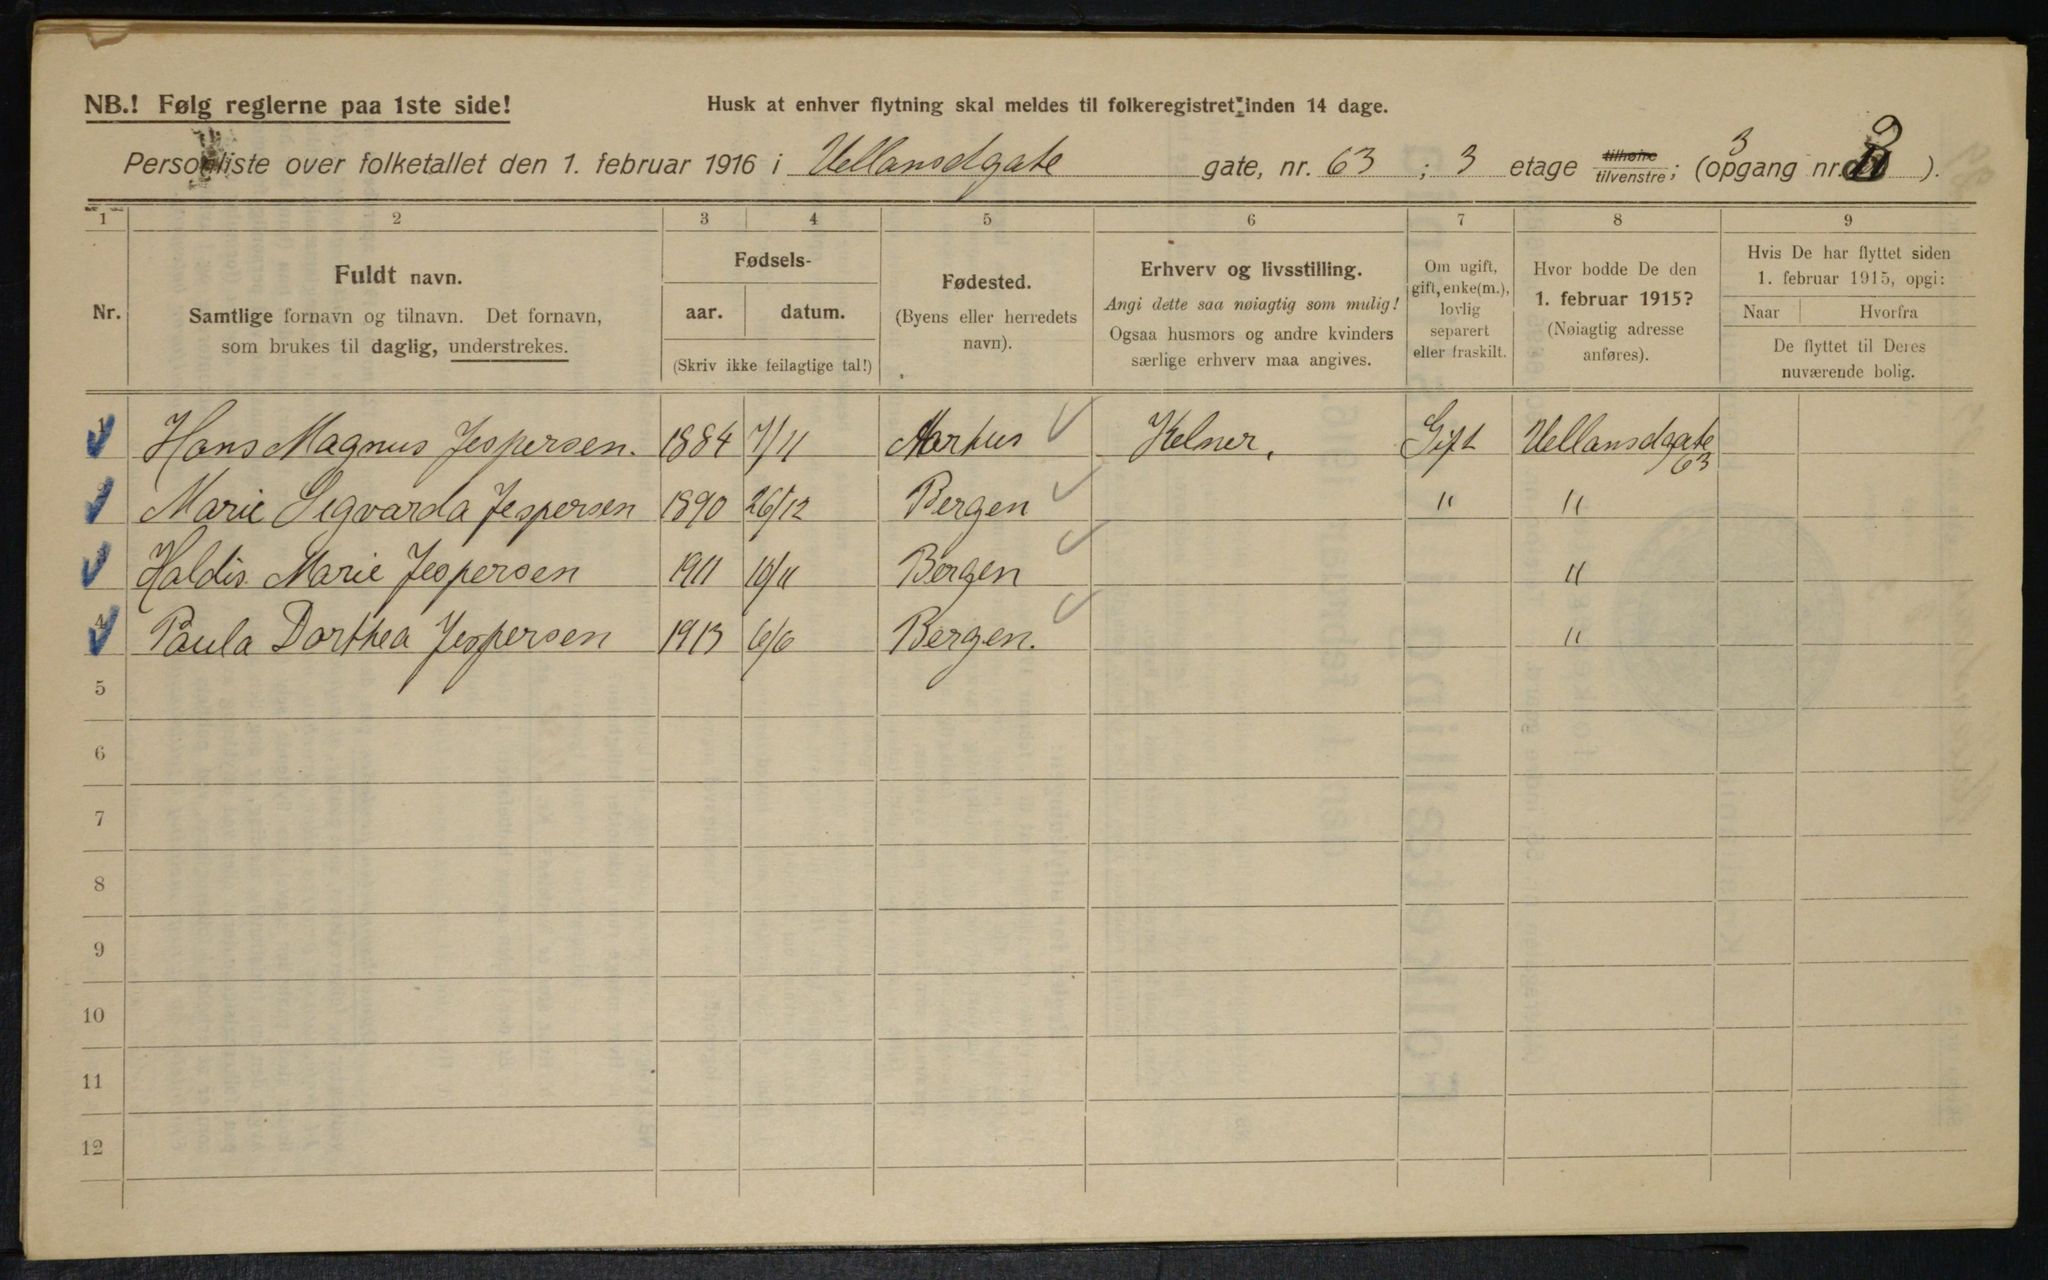 NB.! Følg reglerne paa 1ste side! Husk at enhver flytning skal meldes til folkeregistret inden 14 dage.
Personliste over folketallet den 1. februar 1916 i Uellansdgate gate, nr. 63 ; 3 etage tilhøire tilvenstre; (opgang nr. 3 ).
1 2 3 4 5 6 7 8 9
Nr.
Fuldt navn.
Samtlige fornavn og tilnavn. Det fornavn,
som brukes til daglig, understrekes.
Fødsels-
aar. datum.
(Skriv ikke feilagtige tal!)
Fødested.
(Byens eller herredets
navn).
Erhverv og livsstilling.
Angi dette saa nøiagtig som mulig!
Ogsaa husmors og andre kvinders
særlige erhverv maa angives.
Om ugift,
gift, enke(m.),
lovlig
separert
eller fraskilt.
Hvor bodde De den
1. februar 1915?
(Nøiagtig adresse
anføres).
Hvis De har flyttet siden
1. februar 1915, opgi:
Naar Hvorfra
De flyttet til Deres
nuværende bolig.
1 Hans Magnus Jespersen. 1884 7/11 Aarhus Kelner, Gift Uellansdgate 63
Marie Sigvarda Jespersen 1890 26/12 Bergen " "
Haldis Marie Jespersen 1911 10/11 Bergen "
4 Paula Dorthea Jespersen 1913 6/6 Bergen. "
5
6
7
8
9
10
11
12